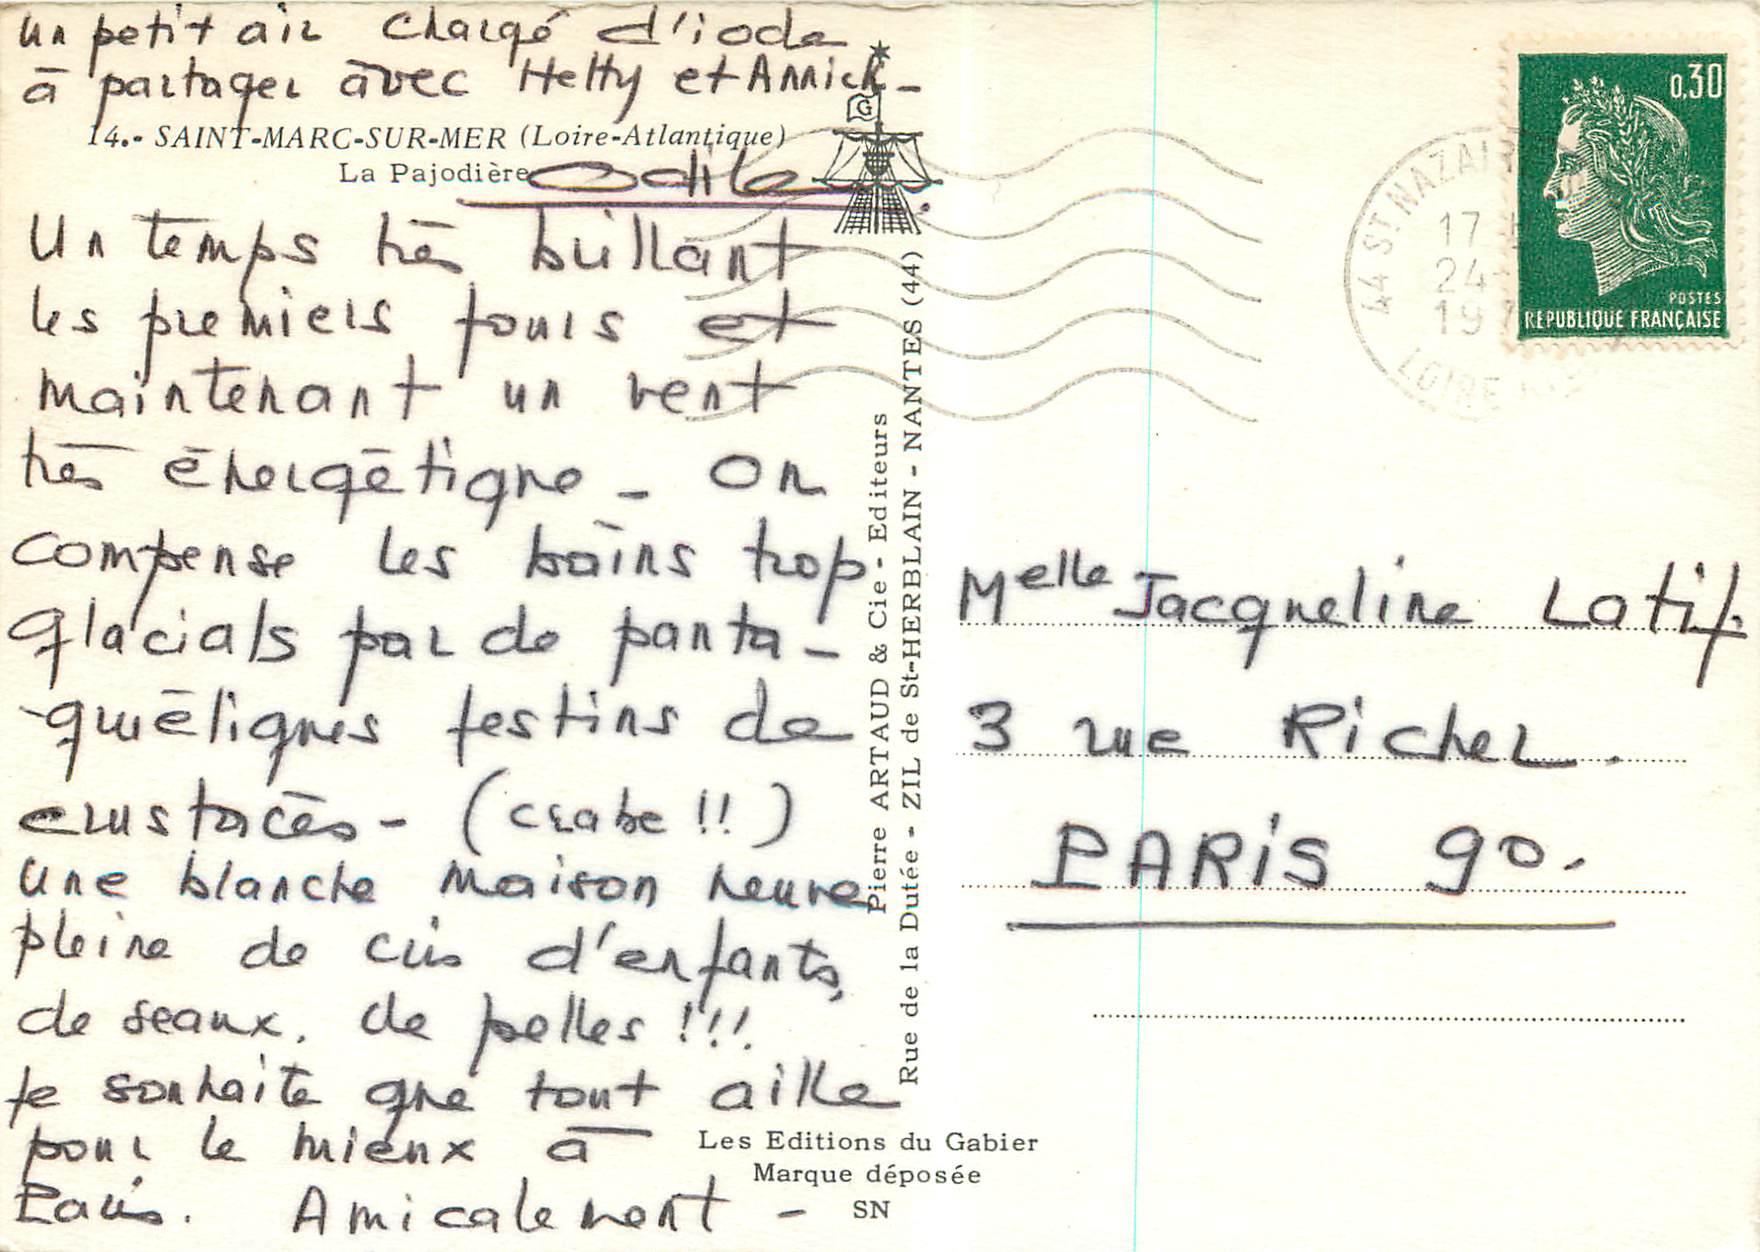 un petit air chargé d'iode
à partager avec Hetty et Annick -
14.- SAINT-MARC-SUR-MER (Loire-Atlantique)
La Pajodière
Odile.
Un temps très brillant
les premiers jours et
maintenant un vent
très énergétique - on
compense les bains trop
glacials par de panta-
-gruéliques festins de
crustacés - (crabe !!)
une blanche maison neuve
pleine de cris d'enfants,
de seaux, de pelles !!!
je souhaite que tout aille
pour le mieux à
Paris. Amicalement -
G
Pierre ARTAUD & Cie - Editeurs
Rue de la Dutée - ZIL de St-HERBLAIN - NANTES (44)
Les Editions du Gabier
Marque déposée
SN
0,30
POSTES
REPUBLIQUE FRANÇAISE
44 ST NAZAIRE
17
24
LOIRE
Melle Jacqueline Latif.
3 rue Richer.
PARIS 9o.